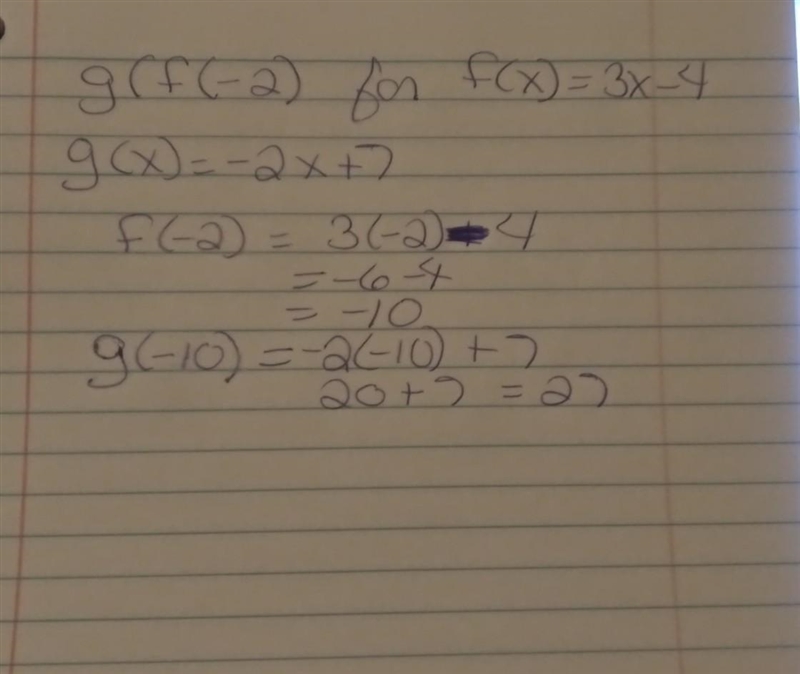 g(f(-2) for f(x)=3x-4
g(x)=-2x+7
f(-2) = 3(-2)-4
=-6-4
= -10
g(-10) =-2(-10)+7
20+7 =27